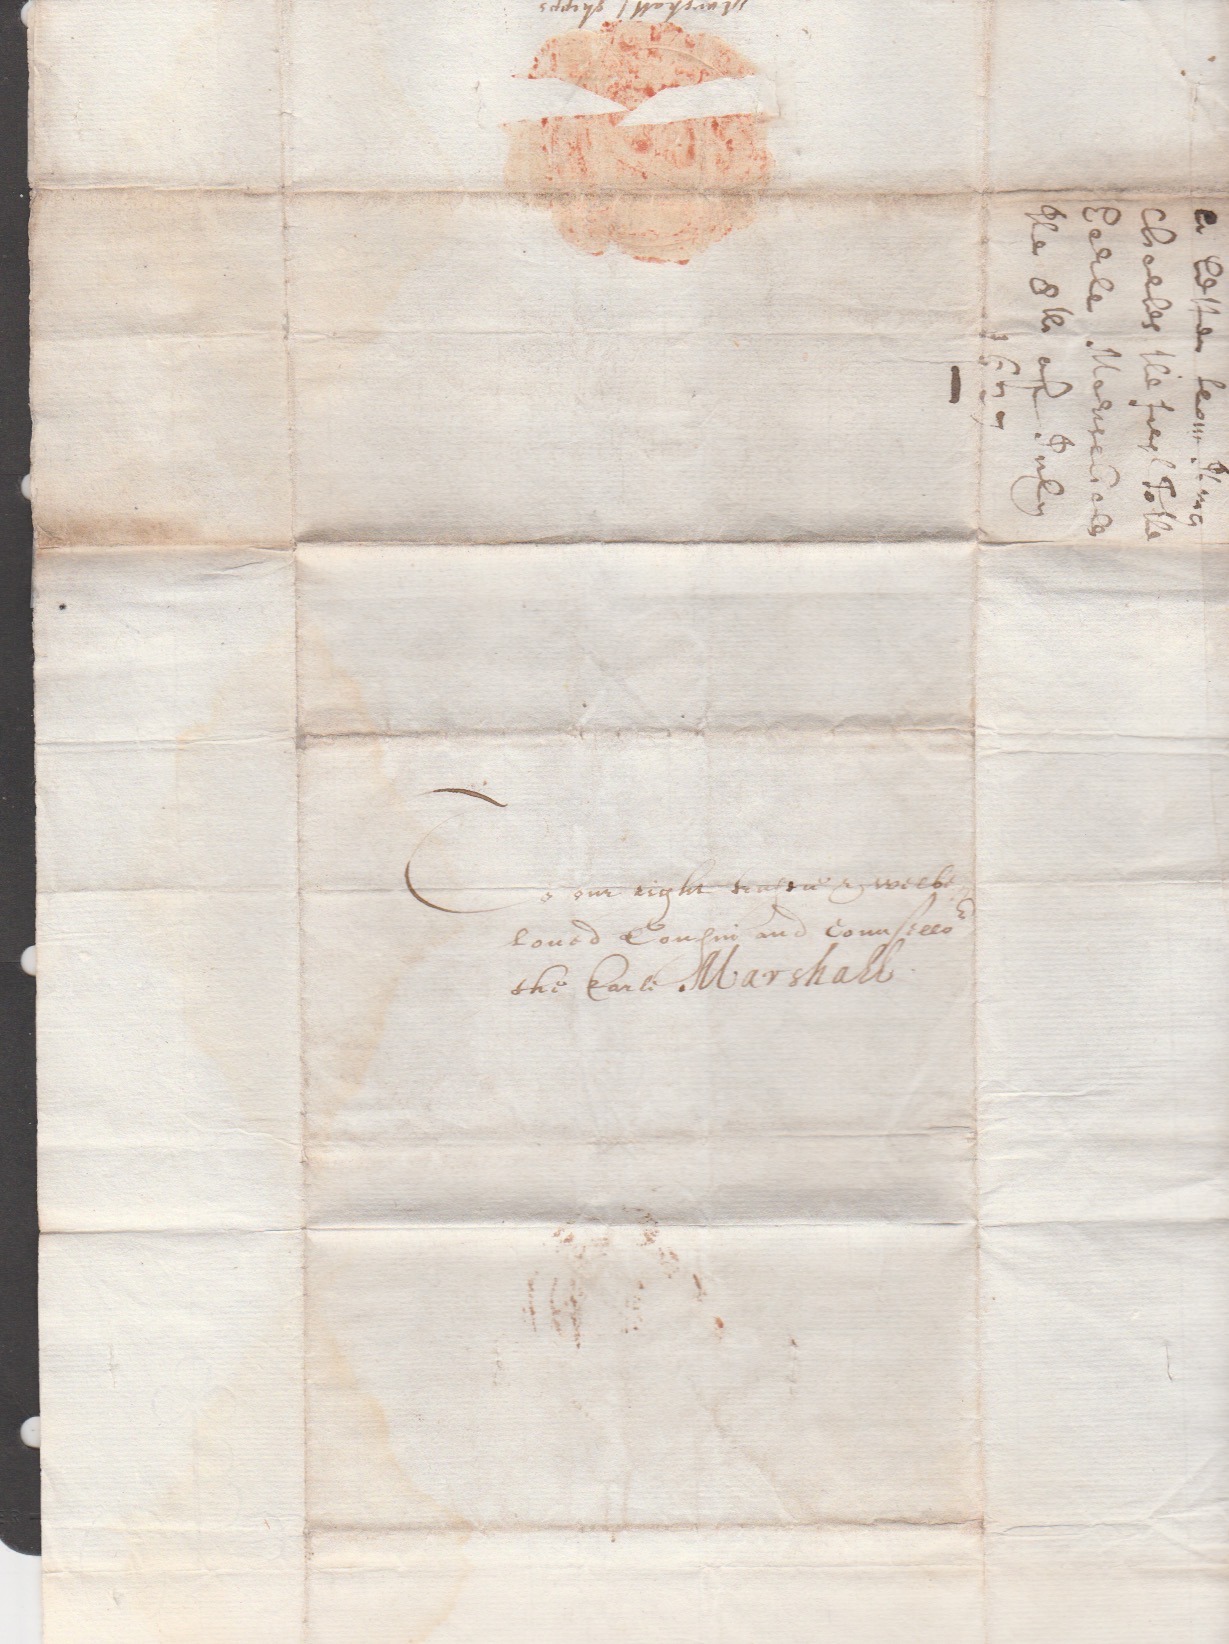 Marshall / shipps
a letter from King
Charles the first To the
Earle Marschall
the 8th of July
To our right trustie & welbe
loued Cousin and Counsello
the Earle Marshall